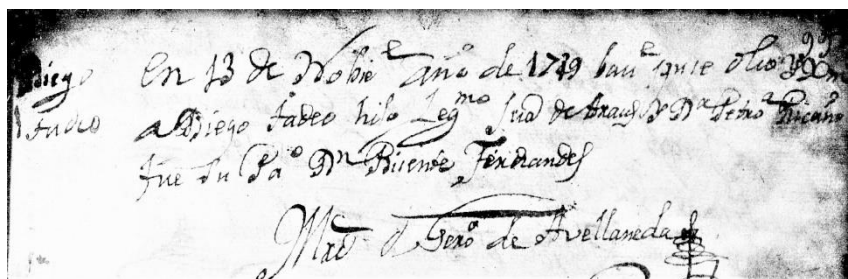 Diego
Tadeo
En 13 de Nobie año de 1719 bau e puse olio y X
a Diego tadeo hijo Legmo Jua de Arauz y Da Petrona
fue su Pa Dn Vicente Fernandes
Mro Gero de Avellaneda